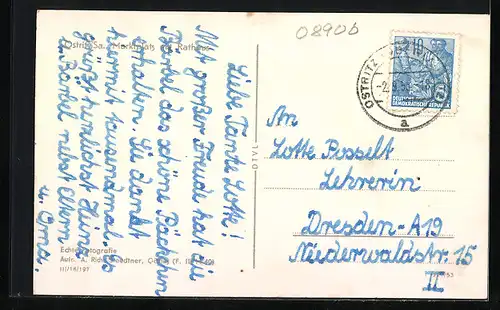 08906
Ostritz/Sa., Marktplatz mit Rathaus
Liebe Tante Lotte!
Mit großer Freude hat die
Bärbel das schöne Päckchen
erhalten. Sie dankt
hiermit tausendmal. Es
grüßt herzlichst Deine
Bärbel nebst Eltern
u. Oma.
Echte Fotografie
III/14/197
OSTRITZ
a
DEUTSCHE
DEMOKRATISCHE REPUBLIK
An
Lotte Posselt
Lehrerin
Dresden-A19
Niederwaldstr. 15
II
53